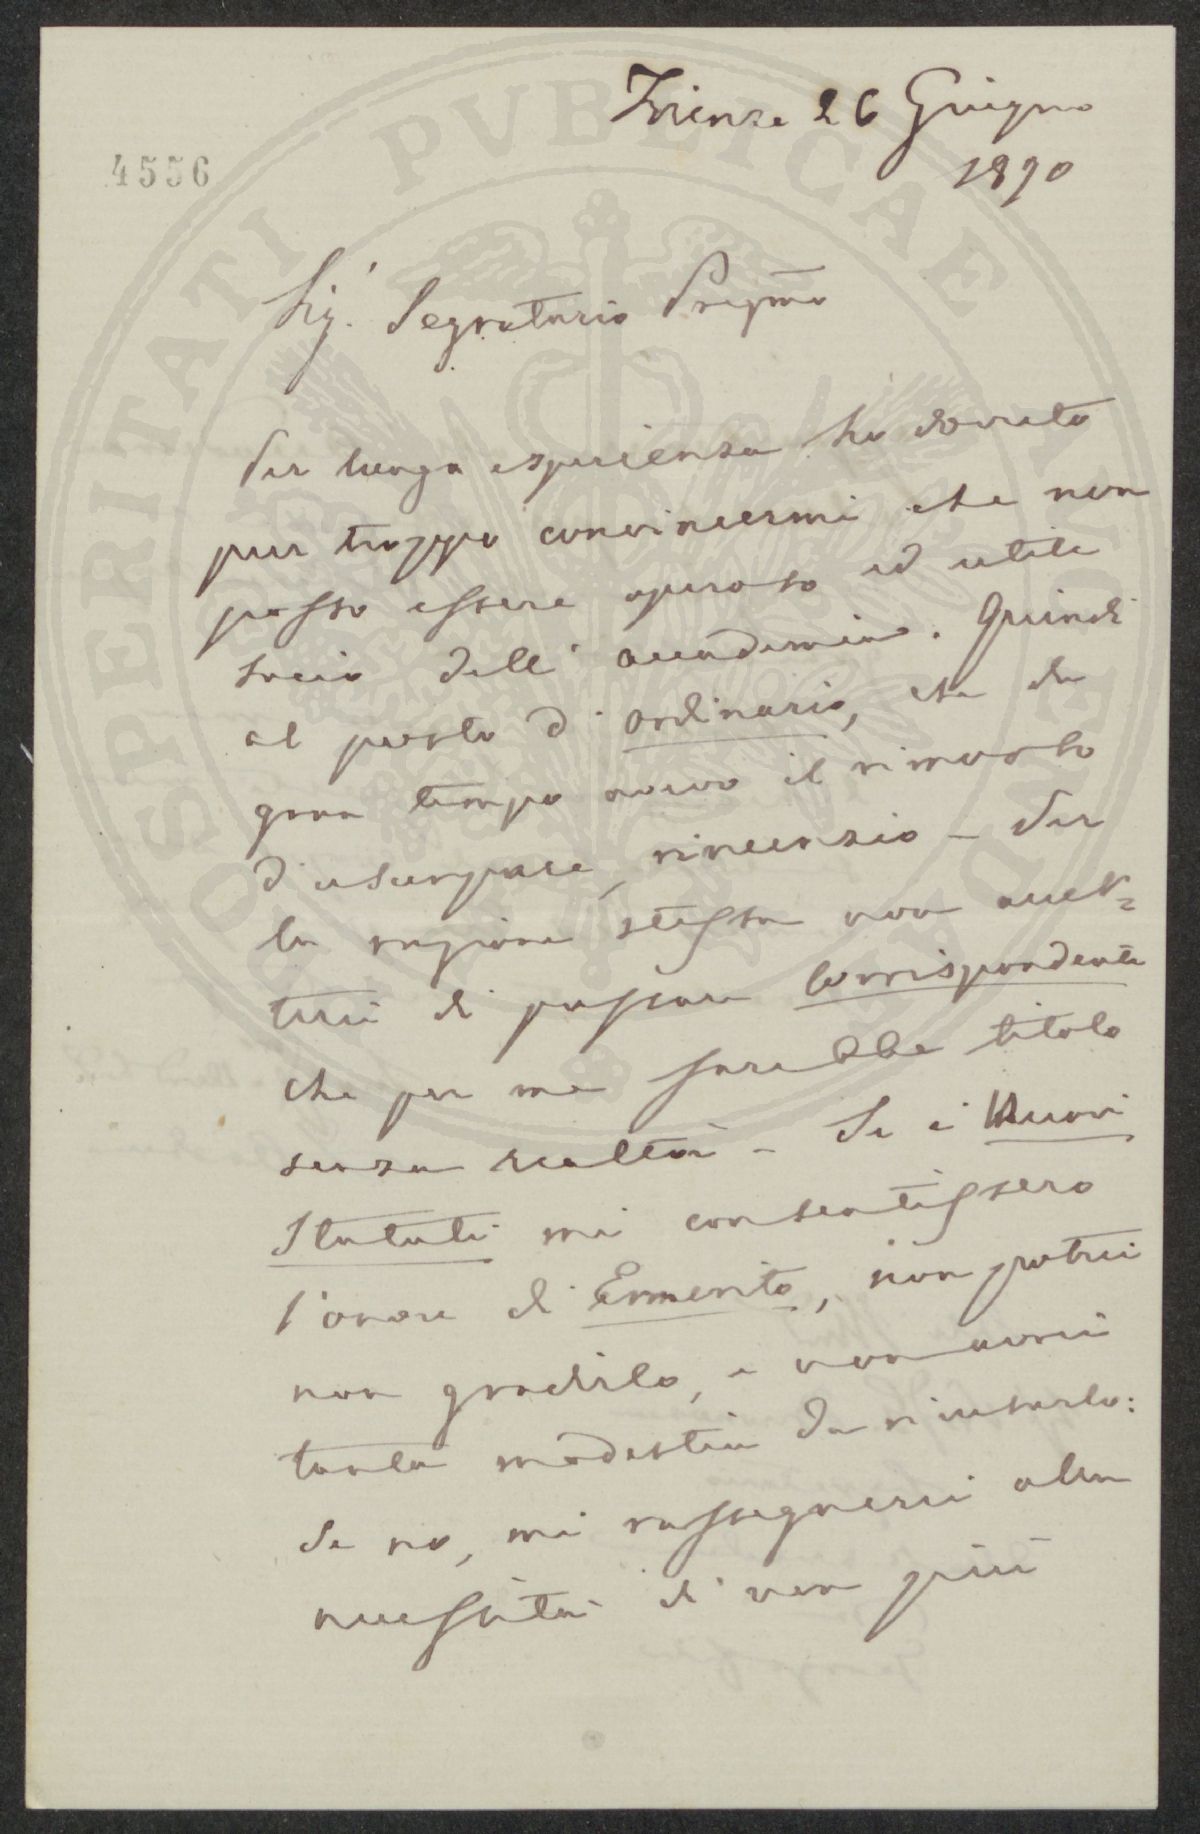 Firenze 26 Giugno
1890
4556
Sig. Segretario Pregmo
Per lunga esperienza ho dovuto
pur troppo convincermi che non
posso essere operoso ed utile
socio dell' accademia. Quindi
al posto d' ordinario, che da
gran tempo avevo il rimorso
d' usurpare, rinunzio – Per
la ragione stessa non accet=
terei di passare Corrispondente
che per me sarebbe titolo
senza realtà – Se i Nuovi
Statuti mi consentissero
l'onore di Emerito, non potrei
non gradirlo, e non avrei
tanta modestia da ricusarlo:
Se no, mi rassegnerei alla
necessità di non più
PROSPERITATI PVBLICAE AVGENDAE